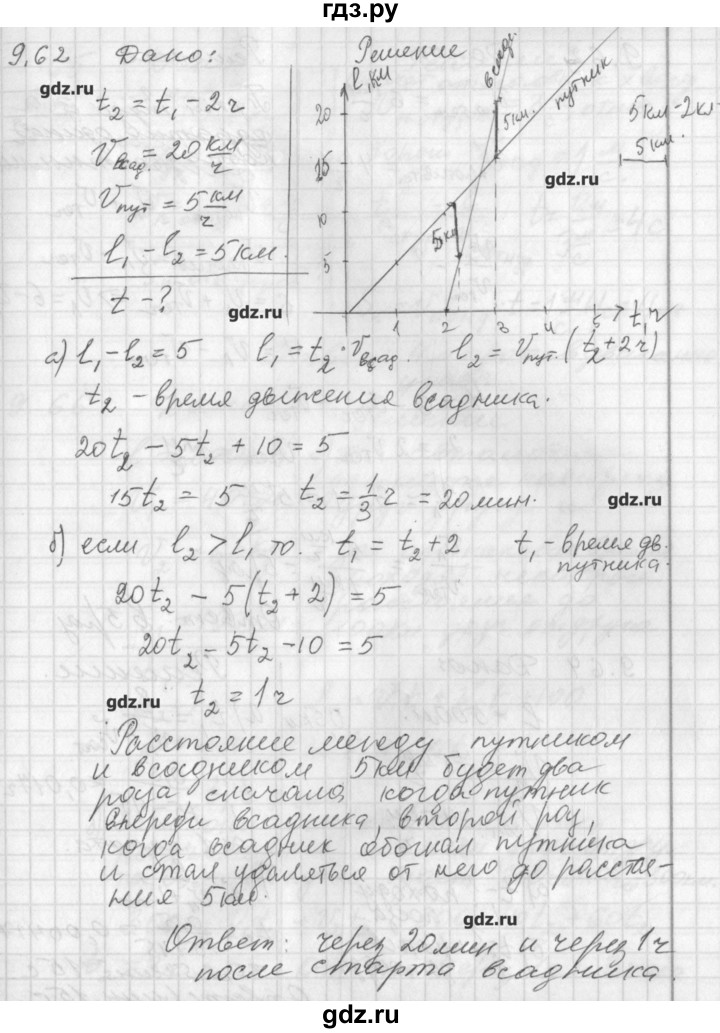 гдз.ру
9,62 Дано: Решение
gdz.ru
t₂ = t₁ - 2 ч
Vвсад. = 20 км/ч
Vпут = 5 км/ч
l₁ - l₂ = 5 км.
t - ?
l, км
всад.
путник
20
15
10
5
5 км.
5 км
1 2 3 4 5 t, ч
5 км - 2 кл
5 км.
gdz.ru
gdz.ru
а) l₁ - l₂ = 5 l₁ = t₂ · Vвсад. l₂ = Vпут. (t₂ + 2 ч)
t₂ - время движения всадника.
20t₂ - 5t₂ + 10 = 5
15t₂ = 5 t₂ = 1/3 ч = 20 мин.
gdz.ru
б) если l₂ > l₁ то. t₁ = t₂ + 2 t₁ - время дв.
путника.
20t₂ - 5(t₂ + 2) = 5
20t₂ - 5t₂ - 10 = 5
gdz.ru t₂ = 1 ч
Расстояние между путником
и всадником 5 км будет два
раза, сначала, когда путник
впереди всадника, второй раз,
когда всадник обогнал путника
и стал удаляться от него до расстоя-
ния 5 км.
gdz.ru
Ответ: через 20 мин и через 1 ч
после старта всадника.
гдз.ру